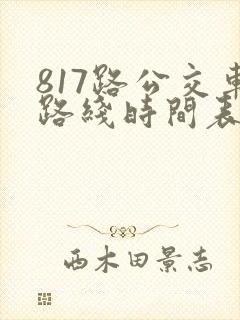 817路公交車
路綫時間表
西木田景志